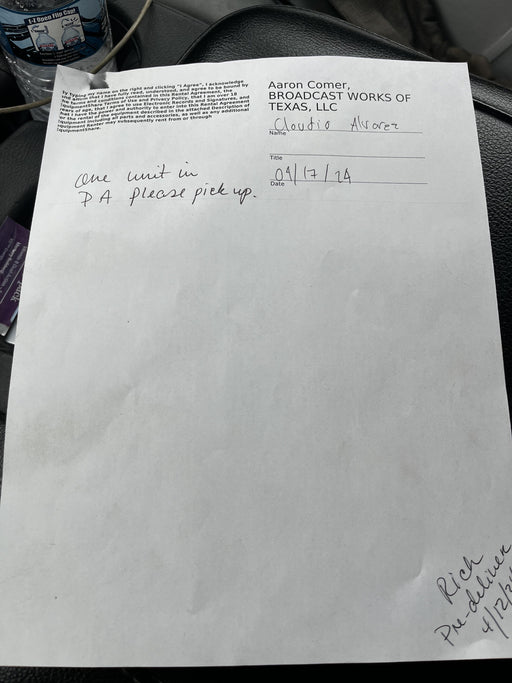 E-Z Open Flip Cap!
By typing my name on the right and clicking "I Agree", I acknowledge
and affirm that I have fully read, understood, and agree to be bound by
the terms and conditions contained in this Rental Agreement, the
EquipmentShare Terms of Use and Privacy Policy, that I am over 18
years of age, that I agree to use Electronic Records and Signatures, and
that I have the power and authority to enter into this Rental Agreement
for the rental of the equipment described in the attached Description of
Equipment including all parts and accessories, as well as any additional
equipment including any subsequently rent from or through
EquipmentShare.
Aaron Comer,
BROADCAST WORKS OF
TEXAS, LLC
Claudio Alvarez
Name
Title
04/17/24
Date
one unit in
PA please pick up.
Rich
Pre-deliver
4/12/2